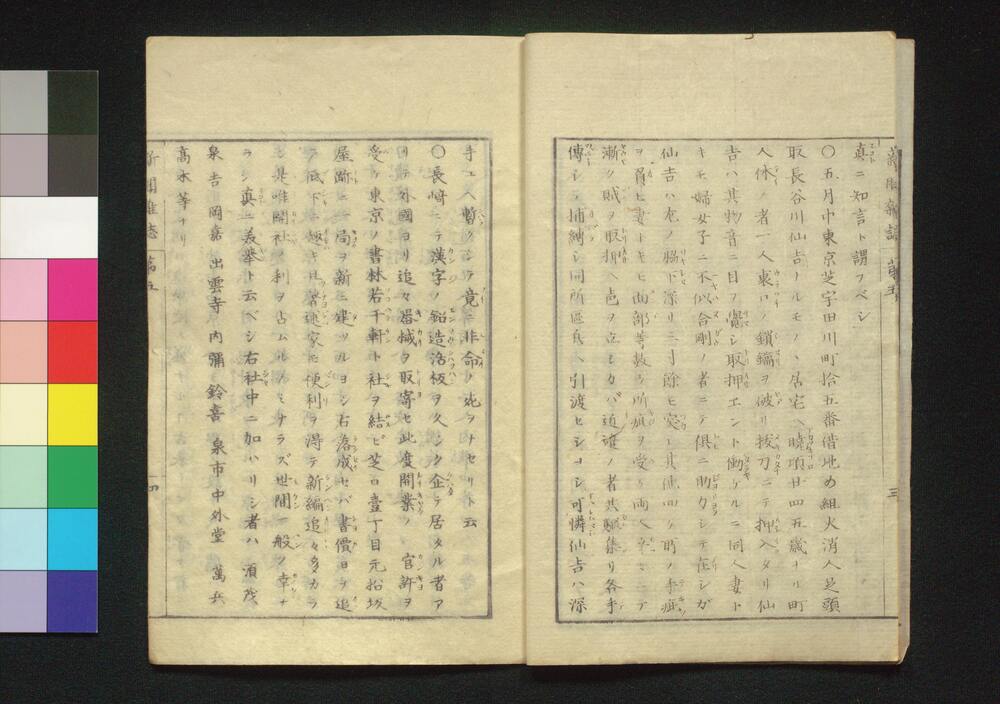 新聞雑誌 第五 三
真ニ知言ト謂フベシ
〇五月中東京芝宇田川町拾五番借地め組火消人足頭
取長谷川仙吉ナルモノヽ居宅ヘ暁頃廿四五歳ナル町
人体ノ者一人裏口ノ鎖鑰ヲ破リ抜刀ニテ押入タリ仙
吉ハ其物音ニ目ヲ覚シ取押エント働ケルニ同人妻ト
キモ婦女子ニ不似合剛ノ者ニテ倶ニ助力シテ在シガ
仙吉ハ左ノ脇下深サ三寸餘モ突レ其他四ヶ所ノ手疵
ヲ負ヒ妻トキモ面部等数ヶ所疵ヲ受ケ両人
漸ク賊ヲ取押ヘ
傳シテ捕縛シ同所区兵ヘ引渡セシヨシ可憐仙吉ハ深
手ユヘ暫クシテ竟ニ非命ノ死ヲナセリト云
〇長崎ニテ漢字ノ鉛造活板ヲ久シク企テ居タル者ア
リ外國ヨリ追々器械ヲ取寄セ此度開業ノ官許ヲ
受ケ東京ノ書林若干軒ト社ヲ結ビ芝口壹丁目元拾坂
屋跡ニ一局ヲ新ニ建ツルヨシ右落成セバ書價日ヲ追
テ低下ニ趣キ其著述家モ便利ヲ得テ新編追々多カラ
ン是唯開社ノ利ヲ占ムルノミナラズ世間一般ノ幸ナ
ラン真ニ美挙ト云ベシ右社中ニ加ハリシ者ハ 須茂
泉吉 岡嘉 出雲寺 内彌 鈴喜 泉市 中外堂 萬兵
高永等ナリ
新聞雑誌 第五 四